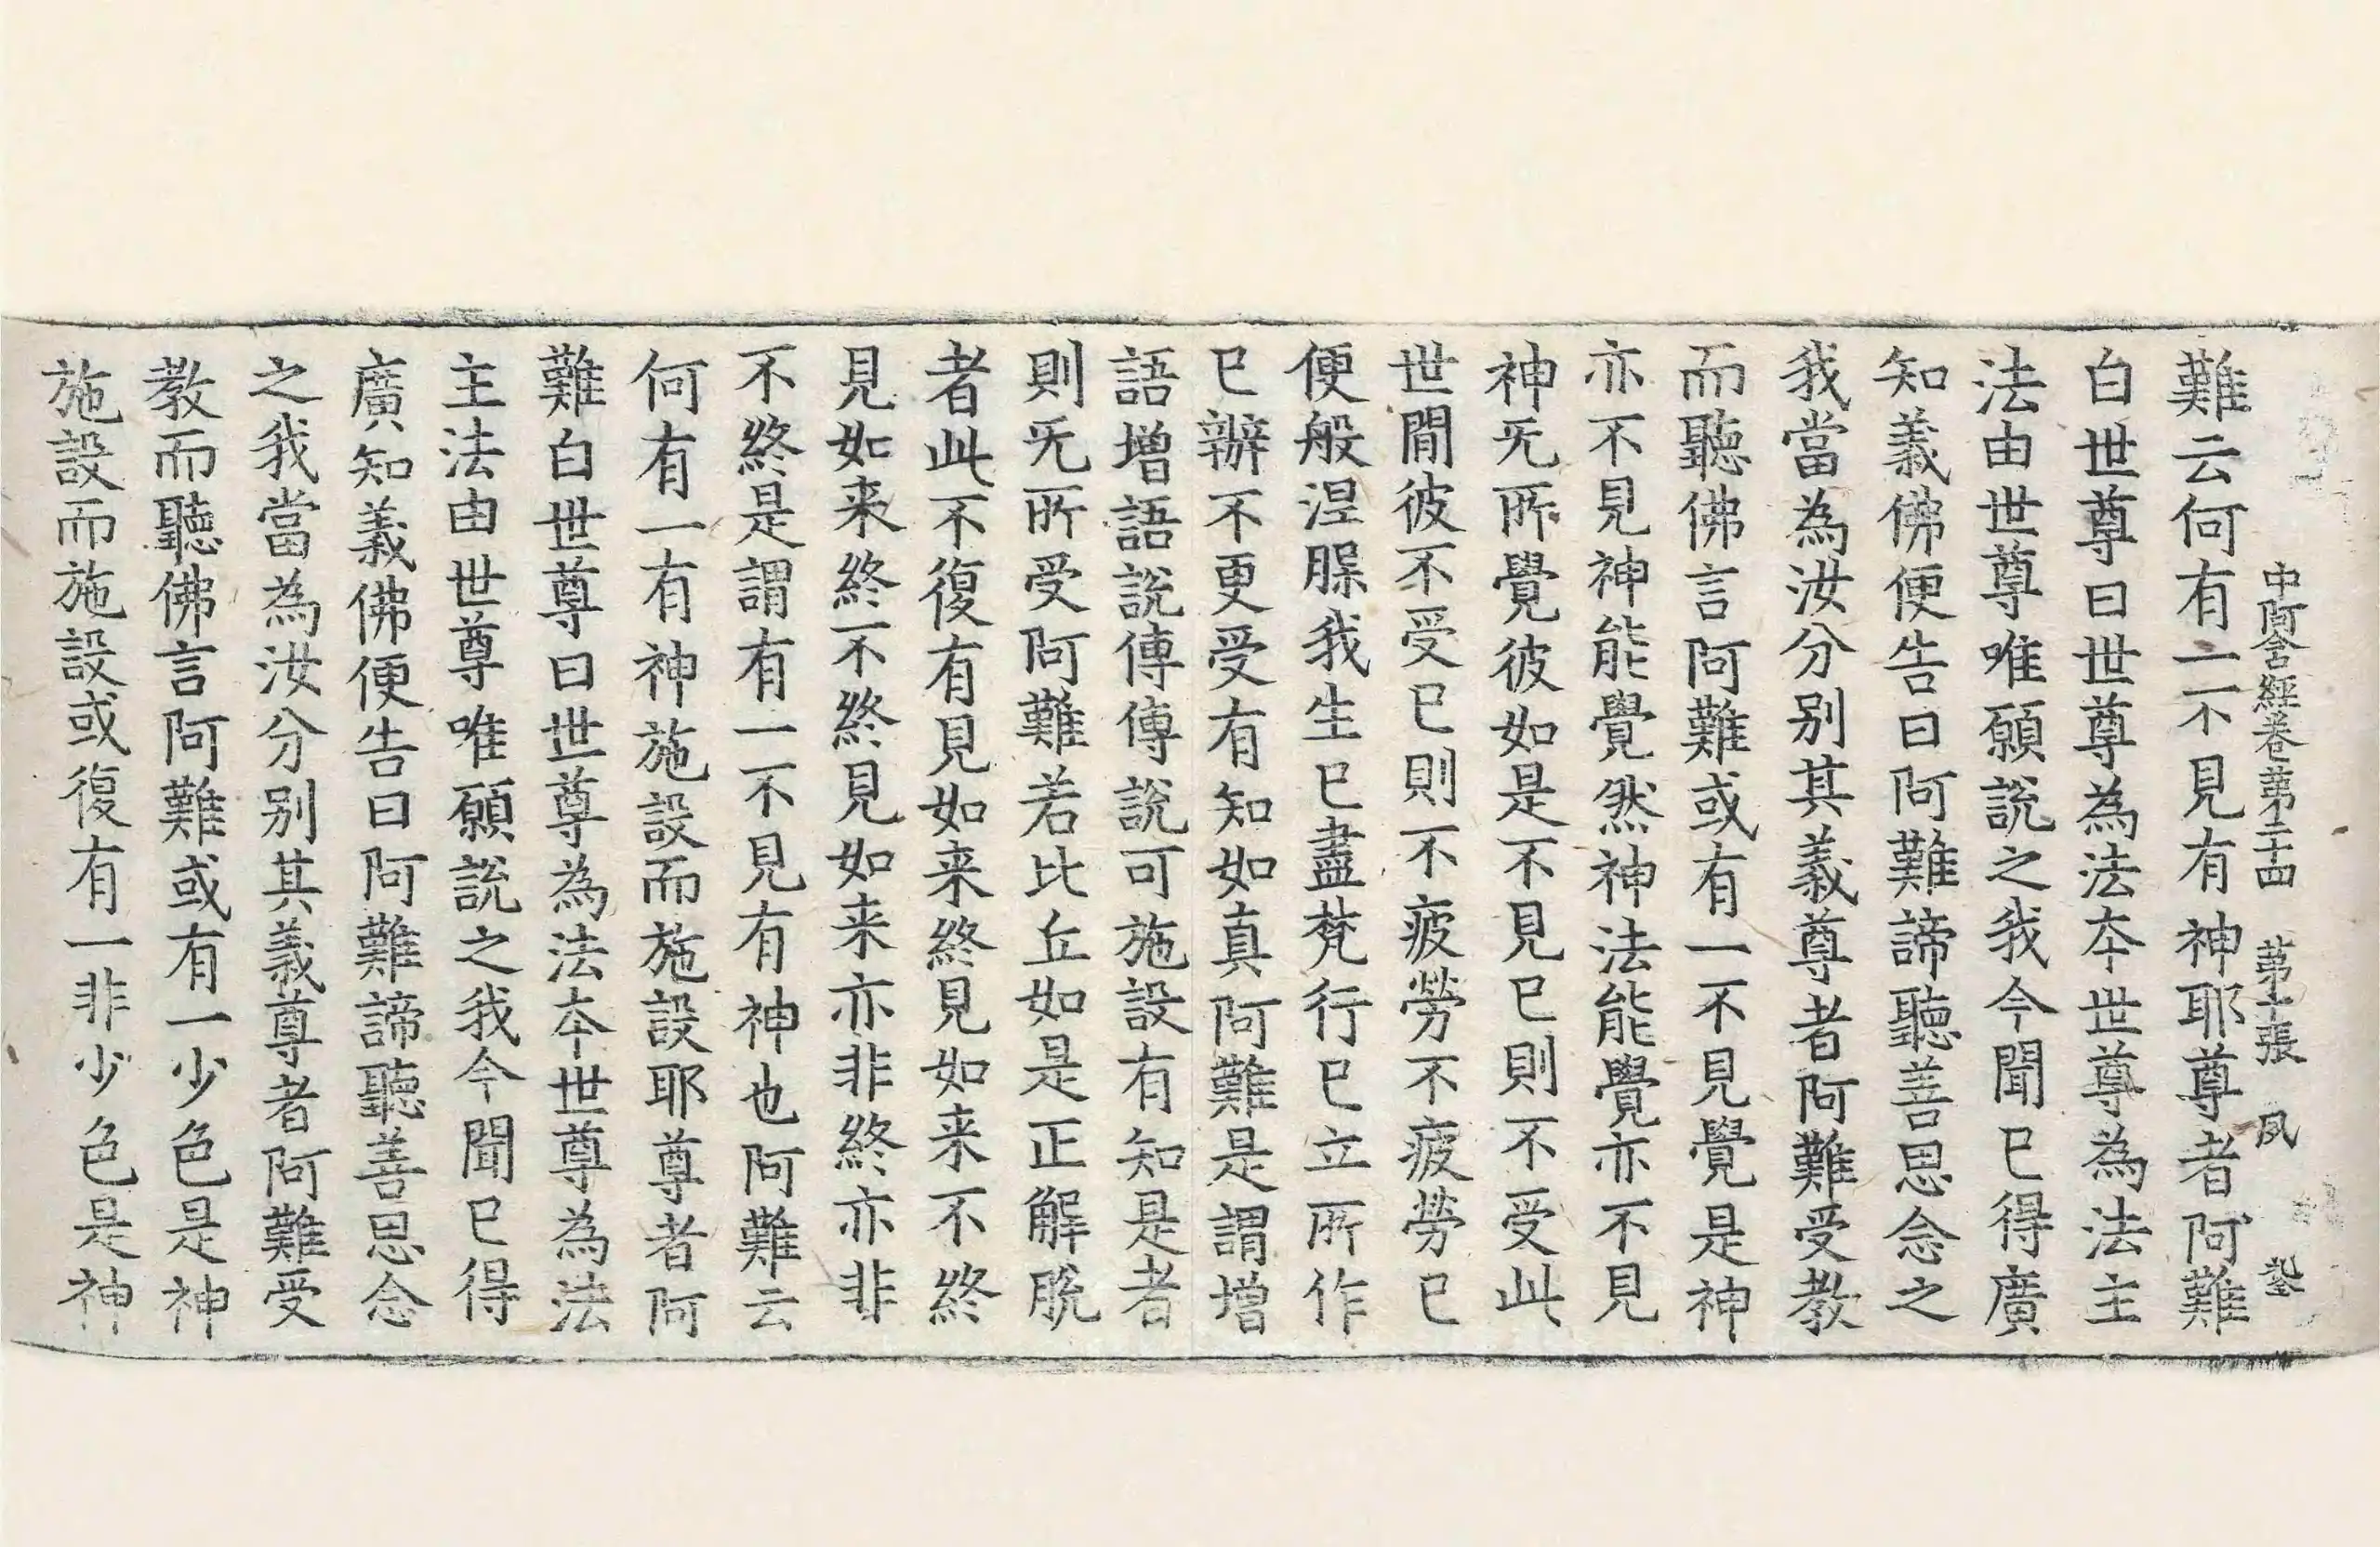 中阿含經卷第二十四 第十張 夙
難云何有一不見有神耶尊者阿難
白世尊曰世尊為法本世尊為法主
法由世尊唯願說之我今聞已得廣
知義佛便告曰阿難諦聽善思念之
我當為汝分別其義尊者阿難受教
而聽佛言阿難或有一不見覺是神
亦不見神能覺然神法能覺亦不見
神无所覺彼如是不見已則不受此
世間彼不受已則不疲勞不疲勞已
便般涅槃我生已盡梵行已立所作
已辦不更受有知如真阿難是謂增
語增語說傳傳說可施設有知是者
則无所受阿難若比丘如是正解脫
者此不復有見如来終見如来不終
見如来終不終見如来亦非終亦非
不終是謂有一不見有神也阿難云
何有一有神施設而施設耶尊者阿
難白世尊曰世尊為法本世尊為法
主法由世尊唯願說之我今聞已得
廣知義佛便告曰阿難諦聽善思念
之我當為汝分別其義尊者阿難受
教而聽佛言阿難或有一少色是神
施設而施設或復有一非少色是神